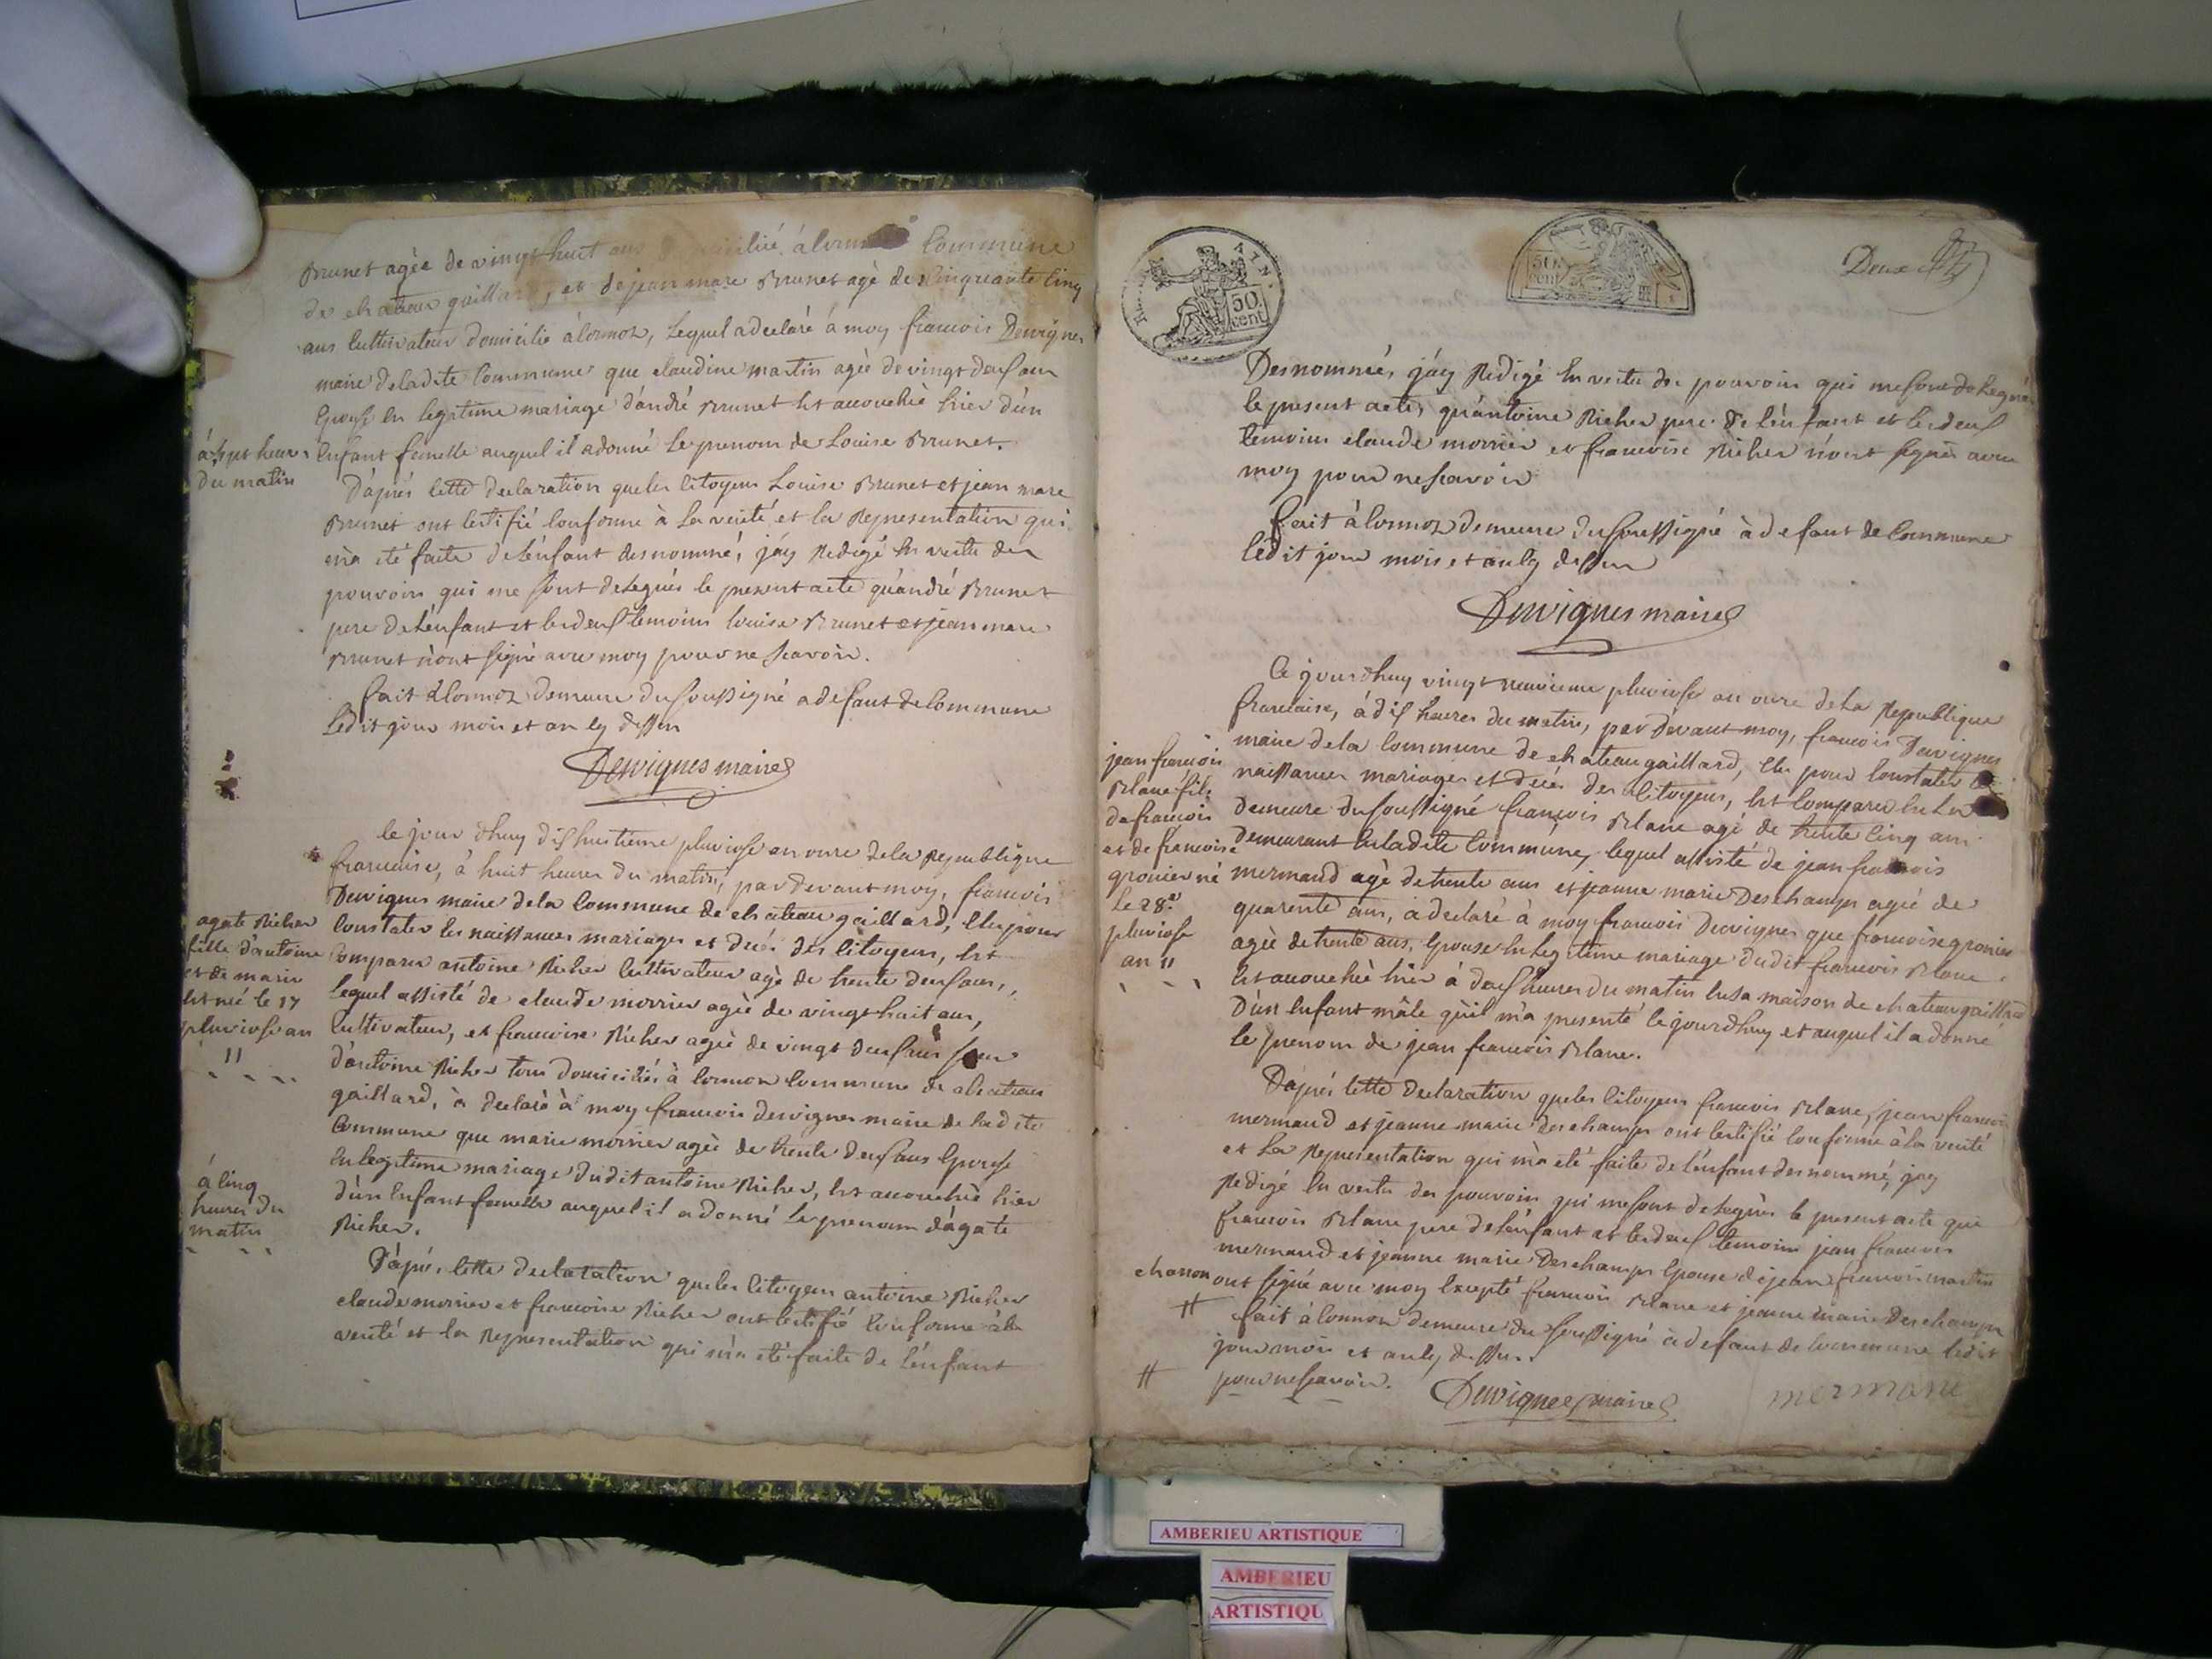 Brunet agée de vingt huit ans domicilié à Cormoz Commune
de chateau gaillard, et de jean marc Brunet agé de Cinquante Cinq
ans Cultivateur domicilié à Cormoz, Lequel a declaré à moy francois Dervignes
maire de ladite Commune que claudine martin agée de vingt deux ans
Epouse en legitime mariage d'andré Brunet Est accouchée hier d'un
Enfant femelle auquel il a donné le prenom de Louise Brunet.
à sept heures
du matin
D'après Cette declaration que les Citoyens Louise Brunet et jean marc
Brunet ont Certifié Conforme à La verité et la Representation qui
m'a été faite de l'enfant desnommé, j'ay Redigé En vertu des
pouvoirs qui me sont delegués le present acte qu'andré Brunet
pere de l'enfant et les deux temoins Louise Brunet et jean marc
Brunet n'ont signé avec moy pour ne scavoir.
fait à Cormoz demeure du soussigné a defaut de Commune
Ledit jour mois et an Cy dessus
Dervignes maire
Ce jour d'huy dix huitieme pluviose an onze de la Republique
francaise, à huit heures du matin, par devant moy, francois
Dervignes maire de la Commune de chateau gaillard, Elu pour
Constater les naissances mariages et decés des Citoyens, Est
Comparu antoine Richer Cultivateur agé de trente deux ans,
lequel assisté de claude morrier agée de vingt huit ans,
Cultivateur, et francoise Richer agée de vingt deux ans soeur
d'antoine Richer tous domiciliés à Cormoz Commune de chateau
gaillard, à declaré à moy francois dervignes maire de ladite
Commune que marie morrier agée de trente deux ans Epouse
En legitime mariage dudit antoine Richer, Est accouchée hier
d'un Enfant femelle auquel il a donné le prenom d'agate
Richer.
agate Richer
fille d'antoine
et de marie
Est né le 17
pluviose an
11
à Cinq
heures du
matin
D'après Cette declaration que les Citoyens antoine Richer
claude morrier et francoise Richer ont Certifié Conforme à la
verité et la Representation qui m'a été faite de l'enfant
REP. FRA. 50 cent
50 cent
Deux
Desnommés, j'ay Redigé En vertu des pouvoirs qui me sont delegués
le present acte, qu'antoine Richer pere de l'enfant et les deux
temoins claude morrier et francoise Richer n'ont signé avec
moy pour ne scavoir
fait à Cormoz demeure du soussigné à defaut de Commune
ledit jour mois et an Cy dessus
Dervignes maire
Ce jourd'huy vingt neuvieme pluviose an onze de La Republique
francaise, à dix heures du matin, par devant moy, francois Dervignes
maire de la Commune de chateau gaillard, Elu pour Constater les
naissances mariages et decés des Citoyens, Est Comparu En la
demeure du soussigné francois Blanc agé de trente Cinq ans
demeurant En ladite Commune, lequel assisté de jean francois
mermand agé de trente ans et jeanne marie Deschamps agée de
quarente ans, à declaré à moy francois Dervignes que francoise gronier
agée de trente ans, Epouse En legitime mariage dudit francois Blanc
Est accouchée hier à deux heures du matin En sa maison de chateau gaillard
D'un Enfant mâle qu'il m'a presenté Ce jourd'huy et auquel il a donné
le prenom de jean francois Blanc.
jean francois
Blanc fils
de francois
et de francoise
gronier né
le 28e
pluviose
an 11
D'après Cette declaration que les Citoyens francois Blanc, jean francois
mermand et jeanne marie deschamps ont Certifié Conforme à la verité
et La Representation qui m'a été faite de l'enfant desnommé, j'ay
Redigé En vertu des pouvoirs qui me sont delegués le present acte que
francois Blanc pere de l'enfant et les deux temoins jean francois
mermand et jeanne marie Deschamps Epouse de jean francois martin
charron ont signé avec moy Excepté francois Blanc et jeanne marie Deschamps
# fait à Cormoz demeure du soussigné à defaut de Commune ledit
jour mois et an Cy dessus.
# pour ne scavoir.
Dervignes maire
mermand
AMBERIEU ARTISTIQUE
AMBERIEU
ARTISTIQU